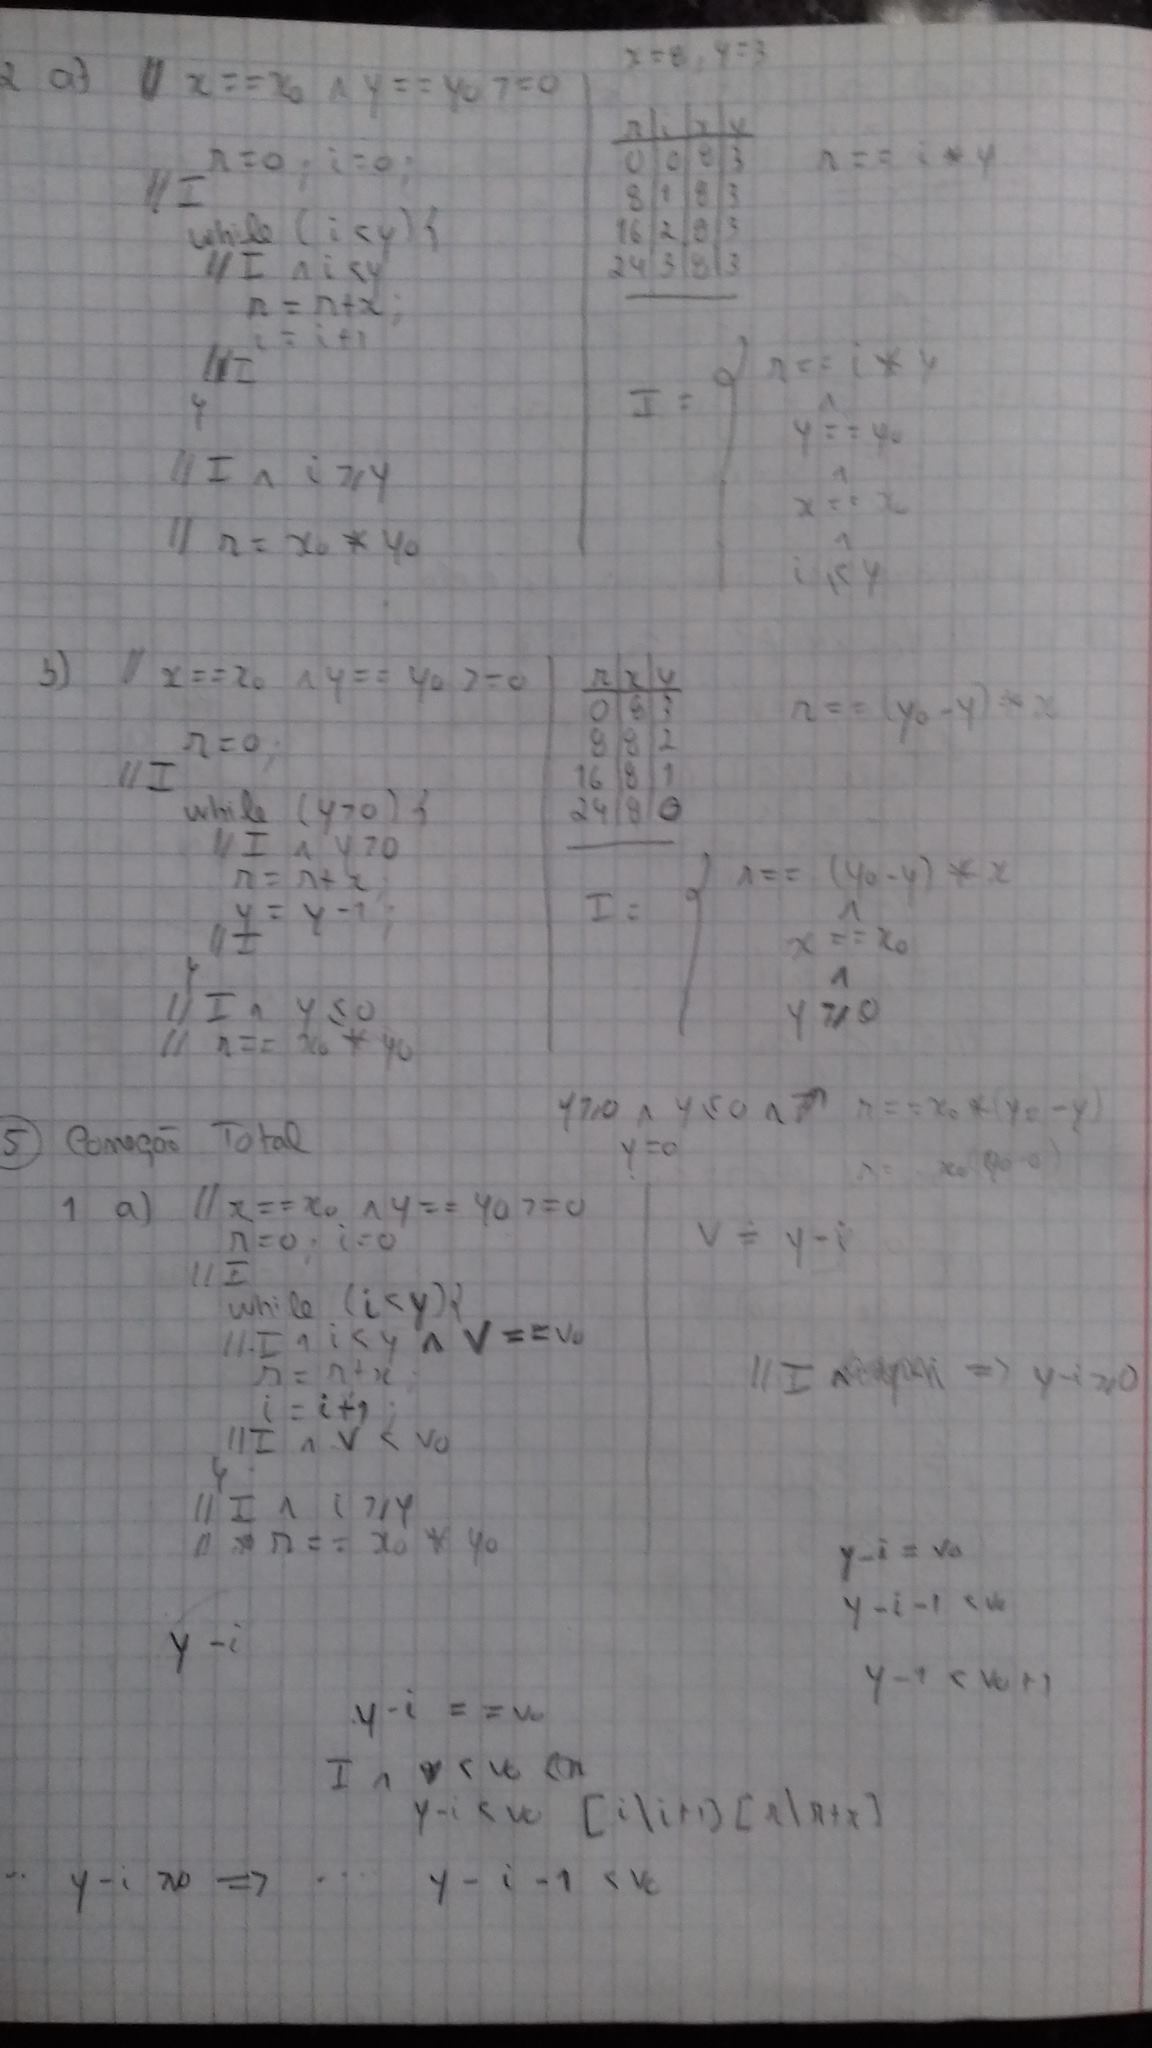 x=8, y=3
2 a) // x==x₀ ∧ y==y₀>=0
r=0; i=0;
// I
while (i<y){
// I ∧ i<y
r = r+x;
i = i+1
// I
}
// I ∧ i≥y
// r = x₀ * y₀
r | i | x | y
0 | 0 | 8 | 3
8 | 1 | 8 | 3
16 | 2 | 8 | 3
24 | 3 | 8 | 3
r == i * y
I = { r == i * y
∧
y == y₀
∧
x == x₀
∧
i ≤ y
b) // x==x₀ ∧ y==y₀>=0
r=0;
// I
while (y>0){
// I ∧ y>0
r = r+x;
y = y-1;
// I
}
// I ∧ y≤0
// r == x₀ * y₀
r | x | y
0 | 8 | 3
8 | 8 | 2
16 | 8 | 1
24 | 8 | 0
r == (y₀-y) * x
I = { r == (y₀-y) * x
∧
x == x₀
∧
y ≥ 0
y≥0 ∧ y≤0 ∧ r==x₀*(y₀-y)
y=0
r= x₀(y₀-0)
5 Correção Total
1 a) // x==x₀ ∧ y==y₀>=0
r=0; i=0
// I
while (i<y){
// I ∧ i<y ∧ V==v₀
r = r+x;
i = i+1;
// I ∧ V < v₀
}
// I ∧ i≥y
// r == x₀ * y₀
V = y-i
// I => y-i≥0
y-i = v₀
y-i-1 < v₀
y-1 < v₀+1
y-i
y-i == v₀
I ∧ v < v₀
y-i < v₀ [i\i+1] [r\r+x]
.. y-i ≥0 => ... y-i-1 < v₀